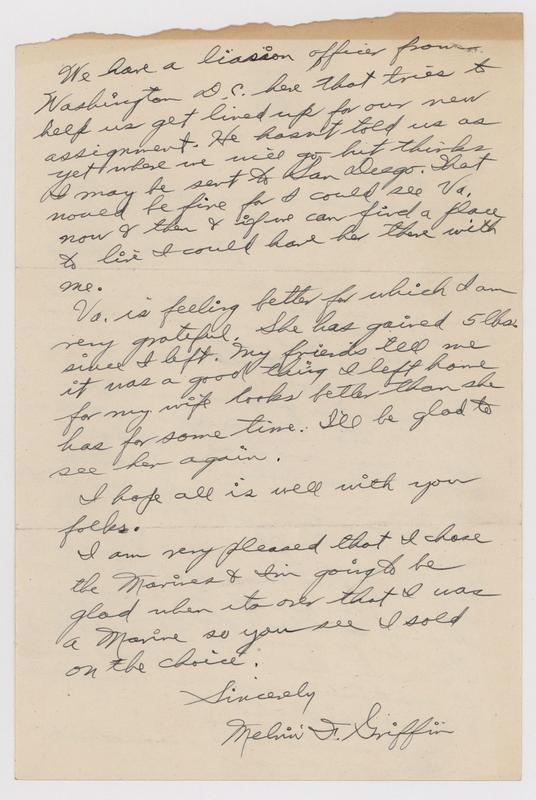 We have a liasion officer from
Washington D.C. here that tries to
help us get lined up for our new
assignment. He hasn't told us as
yet where we will go but thinks
I may be sent to San Deigo. That
would be fine for I could see Va.
now & then & if we can find a place
to live I could have her there with
me.
Va. is feeling better for which I am
very grateful. She has gained 5 lbs.
since I left. My friends tell me
it was a good thing I left home
for my wife looks better than she
has for some time. I'll be glad to
see her again.
I hope all is well with you
folks.
I am very pleased that I chose
the Marines & I'm going to be
glad when its over that I was
a Marine so you see I sold
on the choice.
Sincerely
Melvin F. Griffin